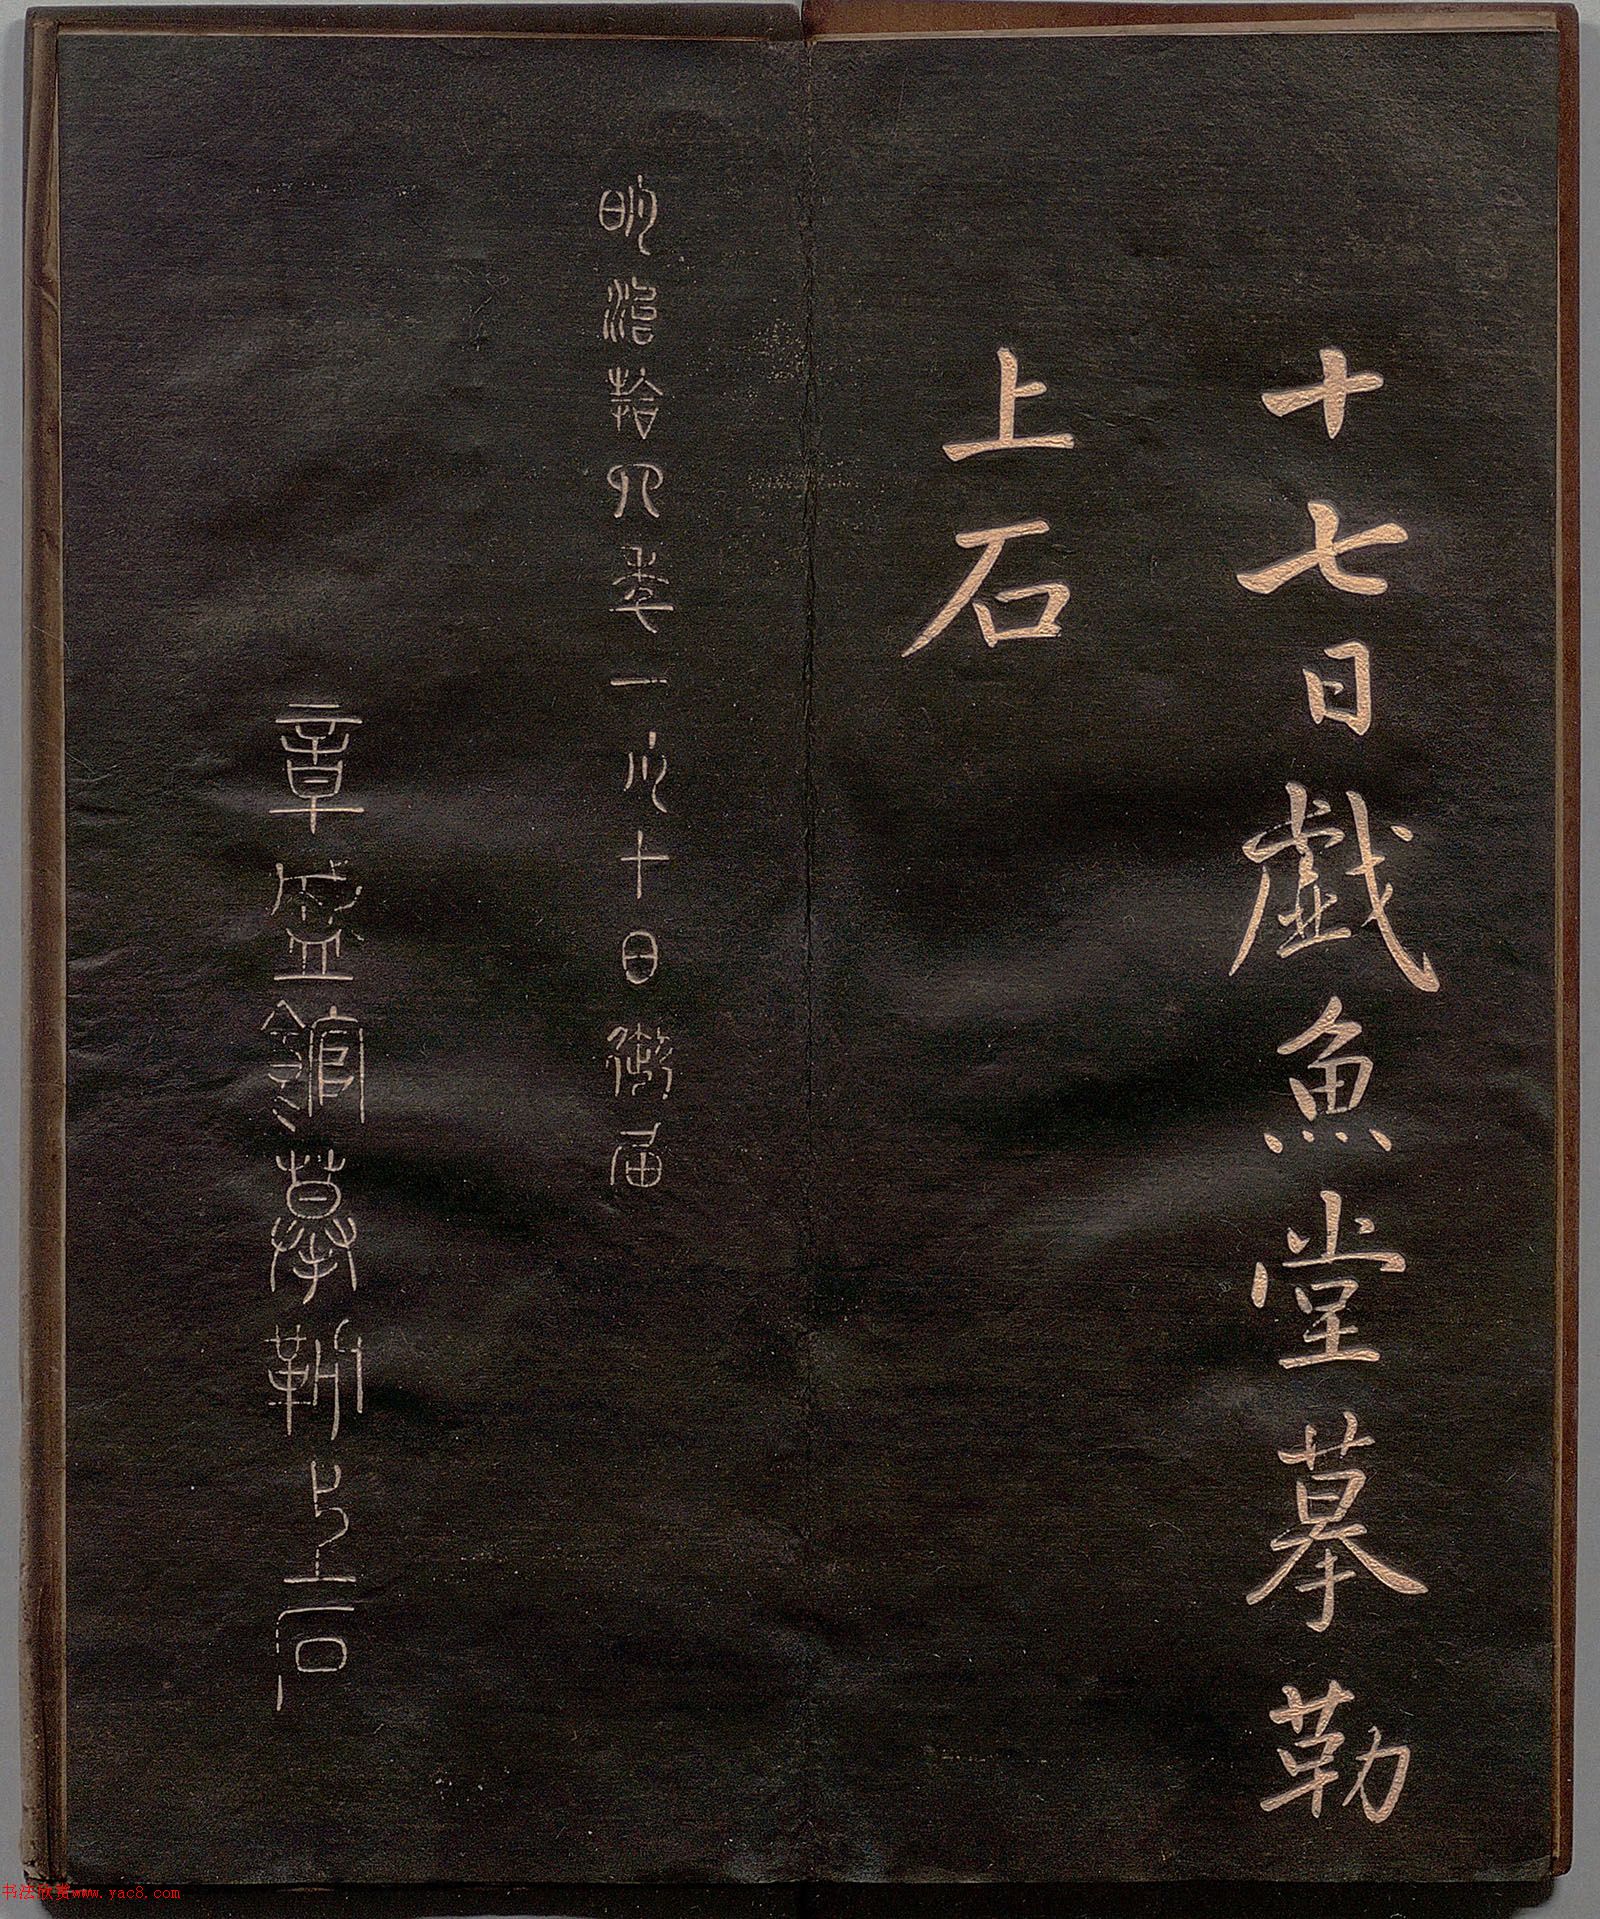 十七日戱魚堂摹勒
上石
明治拾四年一月十日御届
章盛館摹勒上石
书法欣赏www.yac8.com